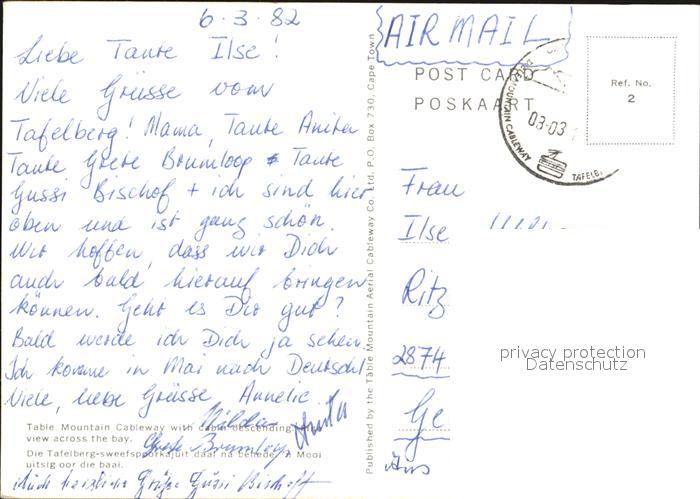 6.3.82
Liebe Tante Ilse!
Viele Grüsse vom
Tafelberg! Mama, Tante Anita
Tante Grete Brumloop + Tante
Gussi Bischof + ich sind hier
oben und ist ganz schön.
Wir hoffen, dass wir Dich
auch bald hierauf bringen
können. Geht es Dir gut?
Bald werde ich Dich ja sehen.
Ich komme in Mai nach Deutschl.
Viele, liebe Grüsse, Annelie.
Hilda
Anita
Grete Brumloop
Auch herzliche Grüße Gussi Bischoff
Table Mountain Cableway with cable descending
view across the bay.
Die Tafelberg-sweefspoorkajuit daal na benede. 'n Mooi
uitsig oor die baai.
Published by the Table Mountain Aerial Cableway Co. Ltd, P.O. Box 730, Cape Town
AIR MAIL
POST CARD
POSKAART
Ref. No.
2
MOUNTAIN CABLEWAY
03-03
TAFELB
Frau
Ilse
Ritz
2874
Ge
privacy protection
Datenschutz